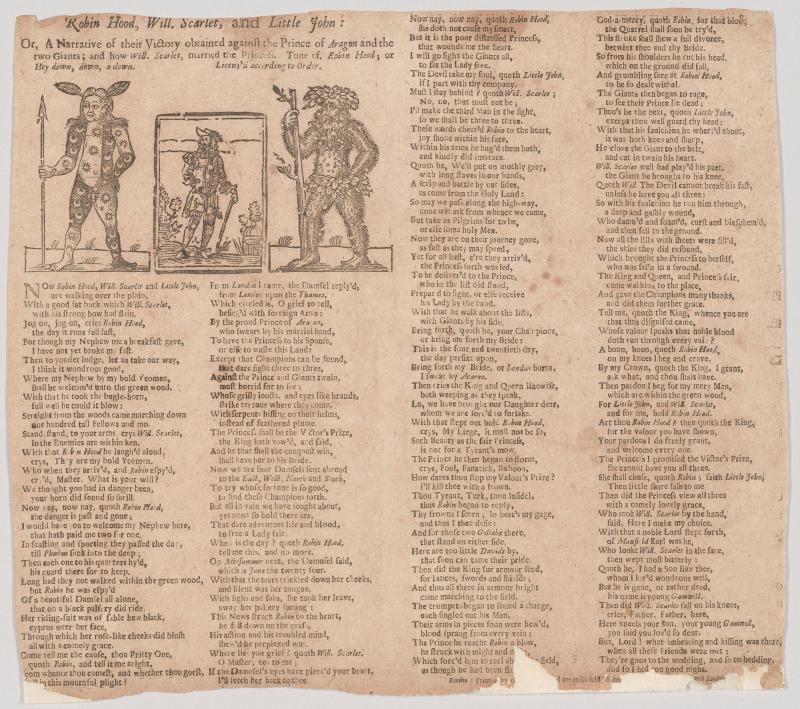 Robin Hood, Will. Scarlet, and Little John:
Or, A Narrative of their Victory obtained against the Prince of Aragon and the
two Giants; and how Will. Scarlet, married the Princess. Tune of, Robin Hood; or
Hey down, down, a down. Licens'd according to Order.
NOw Robin Hood, Will. Scarlet and Little John,
are walking over the plain,
With a good fat buck which Will. Scarlet,
with his strong bow had slain.
Jog on, jog on, cries Robin Hood,
the day it runs full fast,
For though my Nephew me a breakfast gave,
I have not yet broke my fast.
Then to yonder lodge, let us take our way,
I think it wondrous good,
Where my Nephew by my bold Yeomen,
shall be welcom'd unto the green wood.
With that he took the bugle-horn,
full well he could it blow;
Streight from the woods came marching down
one hundred tall Fellows and mo.
Stand, stand, to your arms, crys Will. Scarlet,
lo the Enemies are within ken.
With that Robin Hood he laugh'd aloud,
crys, They are my bold Yeomen.
Who when they arriv'd, and Robin espy'd,
cry'd, Master. What is your will?
We thought you had in danger been,
your horn did sound so shrill.
Now nay, now nay, quoth Robin Hood,
the danger is past and gone;
I would have you to welcome my Nephew here,
that hath paid me two for one.
In feasting and sporting they passed the day,
till Phœbus sunk into the deep;
Then each one to his quarters hy'd,
his guard there for to keep.
Long had they not walked within the green wood,
but Robin he was espy'd
Of a beautiful Damsel all alone,
that on a black palfry did ride.
Her riding-suit was of sable hew black,
cyprus over her face,
Through which her rose-like cheeks did blush
all with a comely grace.
Come tell me the cause, thou Pritty One,
quoth Robin, and tell me aright,
From whence thou comest, and whither thou goest,
all in this mournful plight?
From London I came, the Damsel reply'd,
from London upon the Thames,
Which circled is, O grief to tell,
besieg'd with forraign Arms:
By the proud Prince of Aragon,
who swears by his martial hand,
To have the Princess to his Spouse,
or else to waste this Land:
Except that Champions can be found,
that dare fight three to three,
Against the Prince and Giants twain,
most horrid for to see:
Whose grisly looks, and eyes like brands,
strike terrour where they come,
With serpents hissing on their helms,
instead of feathered plume.
The Princess shall be the Victor's Prize,
the King hath vow'd, and said,
And he that shall the conquest win,
shall have her to his Bride.
Now we are four Damsels sent abroad
to the East, West, North and South,
To try whose fortune is so good,
to find these Champions forth.
But all in vain we have sought about,
yet none so bold there are,
That dare adventure life and blood,
to free a Lady fair.
When is the day? quoth Robin Hood,
tell me this, and no more.
On Midsummer next, the Damsel said,
which is June the twenty four.
With that the tears trickled down her cheeks,
and silent was her tongue.
With sighs and sobs, she took her leave,
away her palfrey sprung:
This News struck Robin to the heart,
he fell down on the grass,
His action and his troubled mind,
shew'd he perplexed was.
Where lies your grief? quoth Will. Scarlet.
O Master, tell to me;
If the Damsel's eyes have pierc'd your heart,
I'll fetch her back to thee.
Now nay, now nay, quoth Robin Hood,
she doth not cause my smart,
But it is the poor distressed Princess,
that wounds me the heart.
I will go fight the Giants all,
to set the Lady free.
The Devil take my soul, queth Little John,
if I part with thy company.
Must I stay behind? quoth Will. Scarlet;
No, no, that must not be;
I'd make the third Man in the fight,
so we shall be three to three.
These words cheer'd Robin to the heart,
joy shone within his face,
Within his arms he hug'd them both,
and kindly did imbrace.
Quoth he, We'll put on mothly grey,
with long staves in our hands,
A scrip and bottle by our sides,
as come from the Holy Land:
So may we pass along the high-way,
none will ask from whence we came,
But take us Pilgrims for to be,
or else some holy Men.
Now they are on their journey gone,
as fast as they may speed,
Yet for all hast, e're they arriv'd,
the Princess forth was led,
To be deliver'd to the Prince,
who in the list did stand,
Prepar'd to fight, or else receive
his Lady by the hand.
With that he walk about the lists,
with Giants by his side,
Bring forth, quoth he, your Champions,
or bring me forth my Bride:
This is the four and twentieth day,
the day prefixt upon,
Bring forth my Bride, or London burns,
I swear by Acaron.
Then cries the King and Queen likewise,
both weeping as they spank,
Lo, we have brought our Daughter dear,
whom we are forc'd to forsake.
With that stept out bold Robin Hood,
crys, My Liege, it must not be so,
Such Beauty as the fair Princess,
is not for a Tyrant's mow.
The Prince he then began to storm,
crys, Fool, Fanatick, Baboon,
How dares thou stop my Valour's Prize?
I'll kill thee with a frown.
Thou Tyrant, Turk, thou Infidel,
thus Robin began to reply,
Thy frowns I scorn; lo here's my gage,
and thus I thee defie:
And for those two Goliahs there,
that stand on either side,
Here are too little Davids by,
that soon can tame their pride.
Then did the King for armour send,
for lances, swords and shields;
And thus all three in armour bright
came marching to the field.
The trumpets began to sound a charge,
each singled out his Man,
Their arms in pieces soon were hew'd,
blood sprang from every vein:
The Prince he reacht Robin a blow,
he struck with might and
Which forc'd him to reel about field,
as though he had been
God-a-mercy, quoth Robin, for that blow,
the Quarrel shall soon be try'd,
This stroke shall shew a full divorce,
betwixt thee and thy Bride.
So from his shoulders he cut his head,
which on the ground did fall,
And grumbling sore at Robin Hood,
to be so dealt withal.
The Giants then began to rage,
to see their Prince lie dead;
Thou's be the next, quoth Little John,
except thou well guard thy head:
With that his faulchion he wherl'd about,
it was both keen and sharp,
He clove the Giant to the belt,
and cut in twain his heart.
Will. Scarlet well had play'd his part,
the Giant he brought to his knee,
Quoth Will. The Devil cannot break his fast,
unless he have you all three:
So with his faulchion he run him through,
a deep and gashly wound,
Who damn'd and foam'd, curst and blasphem'd,
and then fell to the ground.
Now all the lists with shouts were fill'd,
the skies they did resound,
Which brought the Princess to herself,
who was fal'n in a swound.
The King and Queen, and Princess fair,
came walking to the place,
And gave the Champions many thanks,
and did them further grace.
Tell me, quoth the King, whence you are
that thus disguised came,
Whose valour speaks that noble blood
doth run through every vain?
A boon, boon, quoth Robin Hood,
on my knees I beg and crave.
By my Crown, quoth the King, I grant,
ask what, and thou shalt have.
Then pardon I beg for my merry Men,
which are within the green wood,
For Little John, and Will. Scarlet,
and for me, bold Robin Hood.
Art thou Robin Hood? then quoth the King,
for the valour you have shown,
Your pardons I do freely grant,
and welcome every one.
The Prince's I promised the Victor's Prize,
she cannot have you all three.
She shall chuse, quoth Robin; saith Little John,
Then little share falls to me.
Then did the Princess view all three
with a comely lovely grace,
Who took Will. Scarlet by the hand,
said, Here I make my choice.
With that a noble Lord stept forth,
of Maxfield Earl was he,
Who lookt Will. Scarlet in the face,
then wept most bitterly:
Quoth he, I had a Son like thee,
whom I lov'd wondrous well,
But he is gone, or rather dead,
his name is young Gamwell.
Then did Will. Scarlet fall on his knees,
cries, Father, Father, here,
Here kneels your Son, your young Gamwell,
you said you lov'd so dear.
But, Lord! what imbracing and kissing was there,
when all these friends were met:
They're gone to the wedding, and so to bedding,
and so I bid you good night.
London: Printed by and are to be sold London